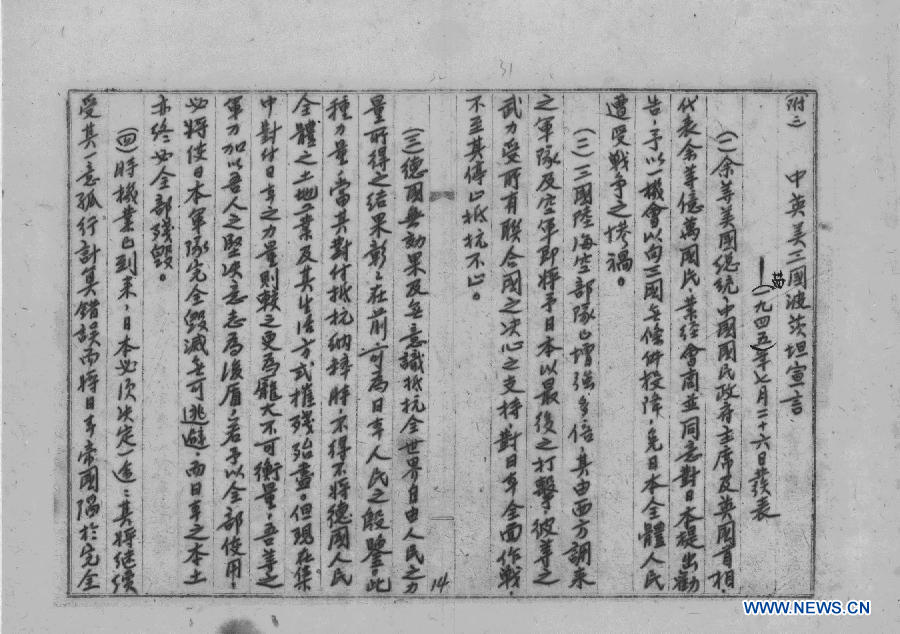 附二
中英美三國波茨坦宣言
(一九四五年七月二十六日發表
(一)余等美國總統、中國國民政府主席及英國首相,
代表余等億萬國民業經會商並同意對日本提出勸
告,予以一機會以向三國無條件投降,免日本全體人民
遭受戰爭之慘禍。
(二)三國陸海空部隊已增強多倍,其由西方調來
之軍隊及空軍即將予日本以最後之打擊,彼等之
武力受所有聯合國之决心之支持,對日本全面作戰,
不至其停止抵抗不止。
(三)德國無効果及無意識抵抗全世界自由人民之力
量所得之结果彰々在前,可為日本人民之殷鑒,此
種力量當其對付抵抗納粹時,不得不將德國人民
全體之土地工業及其生活方式摧殘殆盡。但現在集
中對付日本之力量則較之更為龐大不可衡量,吾等之
軍力加以吾人之堅决意志為後盾,若予以全部使用,
必將使日本軍隊完全毁滅無可逃避,而日本之本土
亦終必全部殘毁。
(四)時機業已到來,日本必須决定一途:其將继续
受其一意孤行計算錯誤而將日本帝國陷於完全
14
31
WWW.NEWS.CN